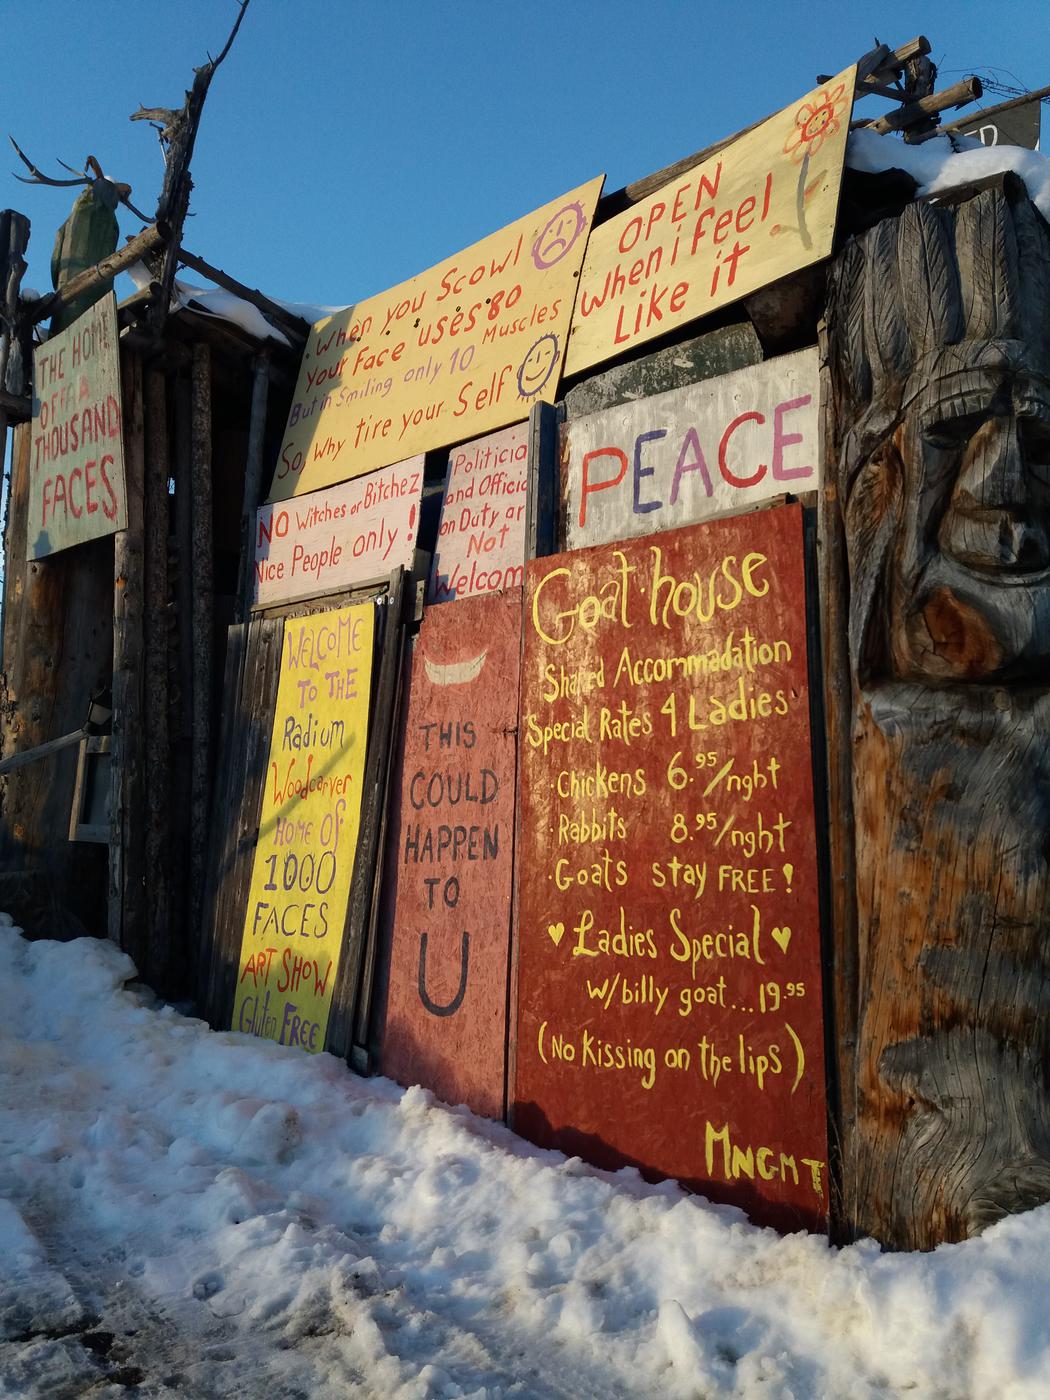 THE HOME
OF A
THOUSAND
FACES
When you Scowl
your Face uses 80
Muscles
But in Smiling only 10
So, Why tire your Self
OPEN
when i feel
Like it
PEACE
NO Witches or Bitchez
Nice People only !
Politicia
and Officia
on Duty ar
Not
Welcom
WELCOME
TO THE
Radium
Woodcarver
HOME OF
1000
FACES
ART SHOW
Gluten FREE
THIS
COULD
HAPPEN
TO
U
Goat house
Shared Accommadation
Special Rates 4 Ladies
·Chickens 6.95/nght
·Rabbits 8.95/nght
·Goats stay FREE!
♥ Ladies Special ♥
w/billy goat...19.95
(No Kissing on the lips)
MNGMT